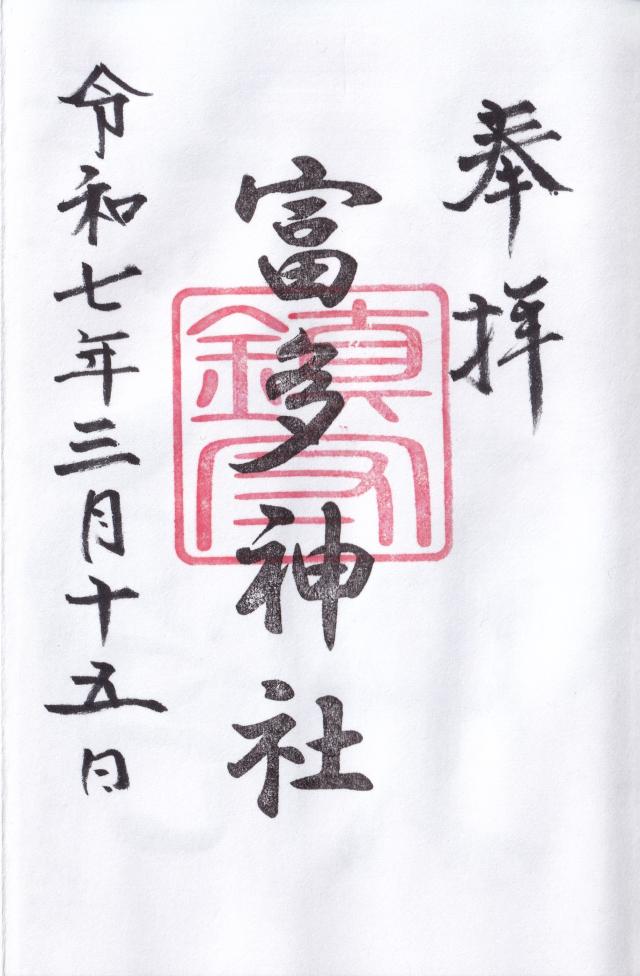 奉拝
富多神社
鎮宅
令和七年三月十五日